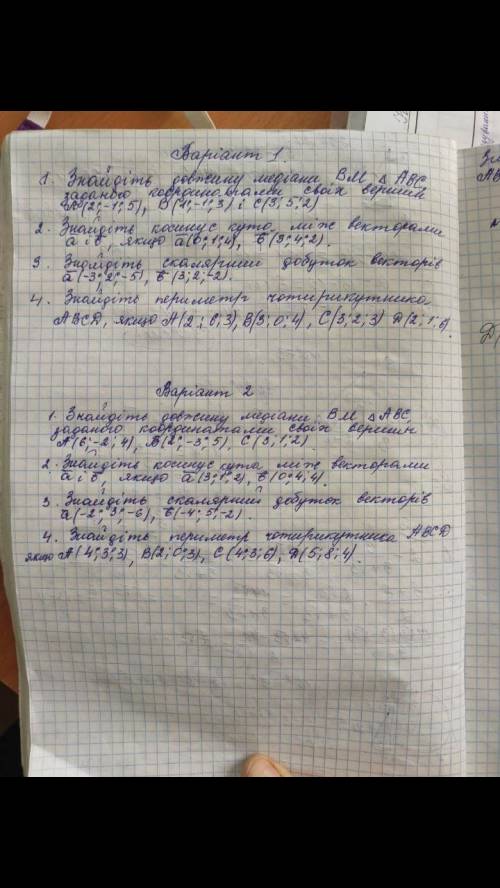 Варіант 1.
1. Знайдіть довжину медіани ВМ △ АВС,
заданого координатами своїх вершин
А(2;-1;5), В(1;-1;3) і С(3;5;2)
2. Знайдіть косинус кута між векторами
а і в, якщо а(0;1;4), в(3;4;2).
3. Знайдіть скалярний добуток векторів
а(-3;2;-5), в(3;2;-2).
4. Знайдіть периметр чотирикутника
АВСD, якщо А(2;6;3), В(3;0;4), С(3;2;3) D(2;1;6).
Варіант 2
1. Знайдіть довжину медіани ВМ △ АВС,
заданого координатами своїх вершин
А(6;-2;4), В(2;-3;5), С(3;1;2)
2. Знайдіть косинус кута, між векторами
а і в, якщо а(3;1;2), в(0;4;4).
3. Знайдіть скалярний добуток векторів
а(-2;3;-6), в(-4;5;-2).
4. Знайдіть периметр чотирикутника АВСD
якщо А(4;3;3), В(2;0;3), С(4;3;6), D(5;8;4).